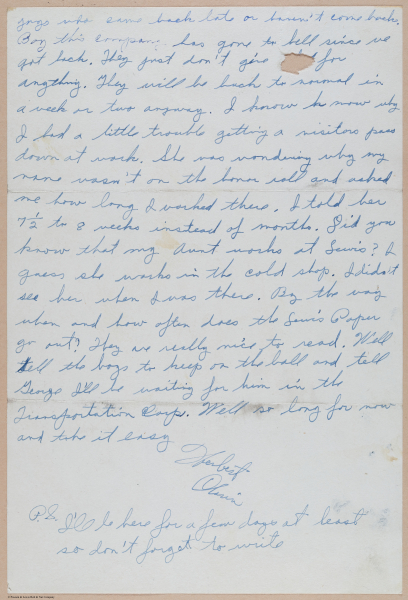 guys who came back late or haven't come back.
Boy this company has gone to hell since we
got back. They just don't give for
anything. They will be back to normal in
a week or two anyway. I know know why
I had a little trouble getting a visitors pass
down at work. She was wondering why my
name wasn't on the honor roll and asked
me how long I worked there. I told her
7½ to 8 weeks instead of months. Did you
know that my Aunt works at Lewis? I
guess she works in the cold shop. I didn't
see her when I was there. By the way
when and how often does the Lewis Paper
go out? They are really nice to read. Well
tell the boys to keep on the ball and tell
George I'll be waiting for him in the
Transportation Corp. Well so long for now
and take it easy
P.S. I'll be here for a few days at least
so don't forget to write